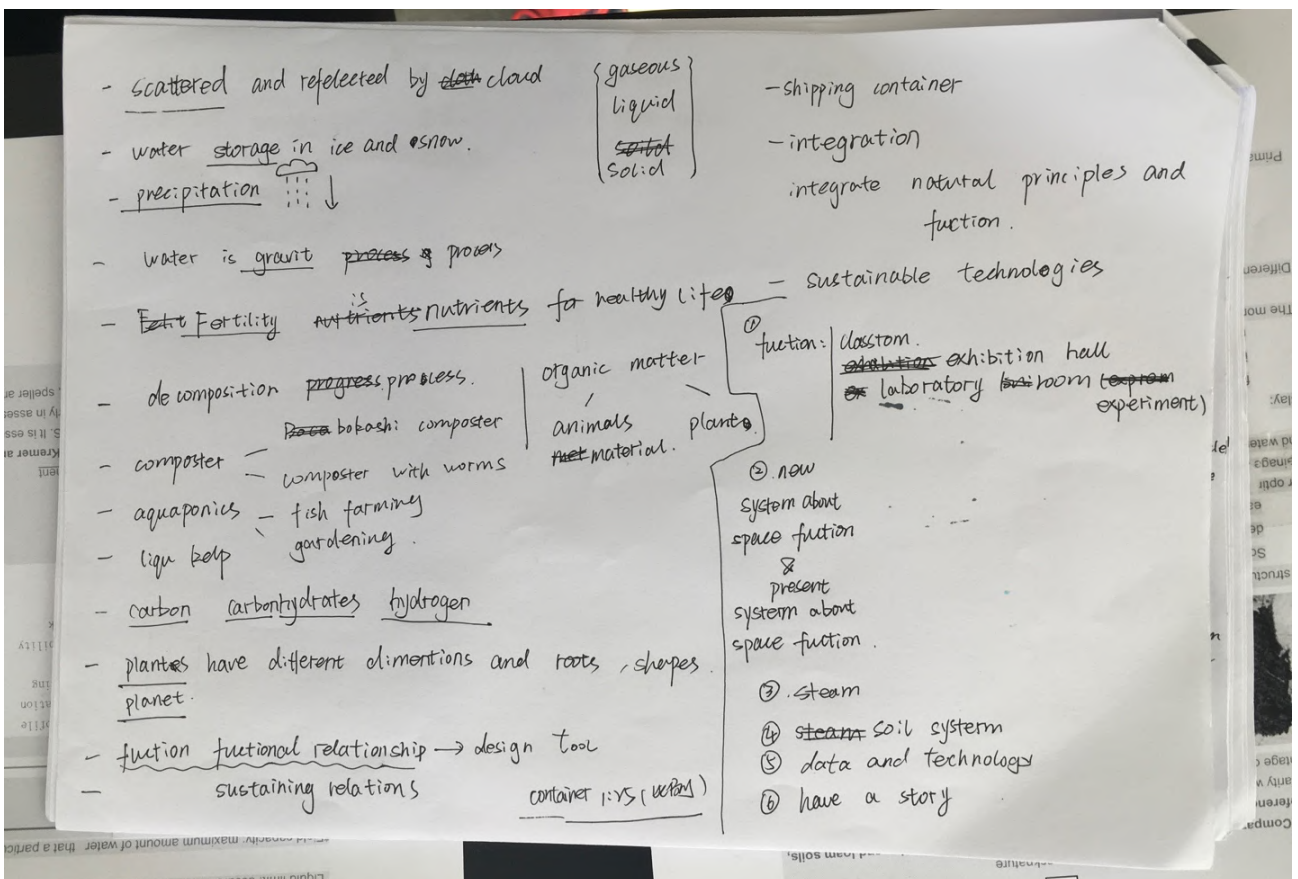 - scattered and refelected by cloud
- water storage in ice and snow.
- precipitation
- water is gravit process
- Fertility is nutrients for healthy life
- decomposition process.
bokashi composter
- composter
composter with worms
- aquaponics - fish farming
gardening.
- liqu kelp
- carbon carbonhydrates hydrogen
- plants have different dimentions and roots, shapes.
planet.
- fuction fuctional relationship → design tool
- sustaining relations
container 1:25
gaseous
liquid
solid
organic matter
animals plants
material.
- shipping container
- integration
integrate natural principles and
fuction.
- sustainable technologies
① fuction:
exhibition hall
laboratory room
experiment)
② new
system about
space fuction
&
present
systerm about
space fuction.
③ .steam
④ soil systerm
⑤ data and technology
⑥ have a story